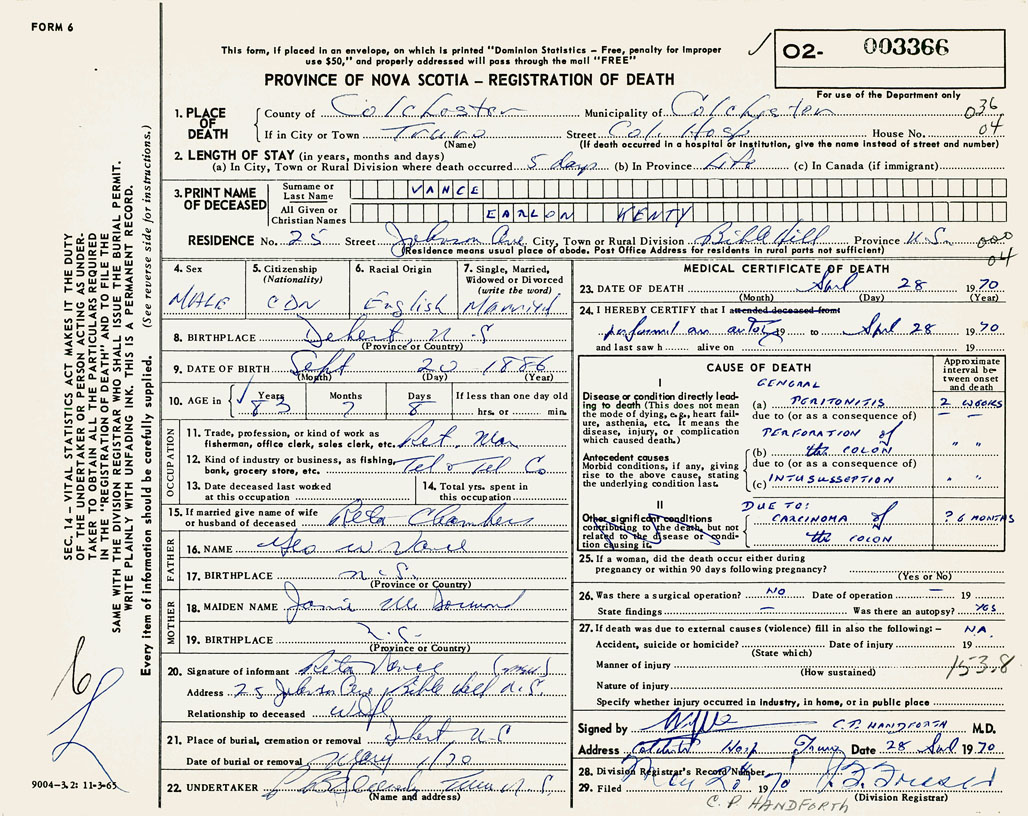 FORM 6
This form, if placed in an envelope, on which is printed "Dominion Statistics – Free, penalty for improper
use $50," and properly addressed will pass through the mail "FREE"
02- 003366
PROVINCE OF NOVA SCOTIA – REGISTRATION OF DEATH
For use of the Department only
036
04
1. PLACE OF DEATH County of Colchester Municipality of Colchester
If in City or Town Truro Street Col. Hosp House No.
(Name) (If death occurred in a hospital or institution, give the name instead of street and number)
2. LENGTH OF STAY (in years, months and days)
(a) In City, Town or Rural Division where death occurred 5 days (b) In Province Life (c) In Canada (if immigrant)
3. PRINT NAME OF DECEASED
Surname or Last Name VANCE
All Given or Christian Names EARLON KENTY
RESIDENCE No. 25 Street Johnson Ave City, Town or Rural Division Bible Hill Province N.S.
(Residence means usual place of abode. Post Office Address for residents in rural parts not sufficient)
000
04
4. Sex MALE
5. Citizenship (Nationality) CDN
6. Racial Origin English
7. Single, Married, Widowed or Divorced (write the word) Married
8. BIRTHPLACE Debert N-S
(Province or Country)
9. DATE OF BIRTH Sept 20 1886
(Month) (Day) (Year)
10. AGE in Years 83 Months 7 Days 8 If less than one day old hrs. or min.
OCCUPATION
11. Trade, profession, or kind of work as
fisherman, office clerk, sales clerk, etc. Ret. Man
12. Kind of industry or business, as fishing,
bank, grocery store, etc. Tel & Tel Co
13. Date deceased last worked
at this occupation
14. Total yrs. spent in
this occupation
15. If married give name of wife
or husband of deceased Reta Chambers
FATHER
16. NAME Geo W Vance
17. BIRTHPLACE N.S.
(Province or Country)
MOTHER
18. MAIDEN NAME Janie
19. BIRTHPLACE N.S.
(Province or Country)
20. Signature of informant Reta Vance (Mrs)
Address 25 Johnson Ave Bible Hill N.S
Relationship to deceased wife
21. Place of burial, cremation or removal Debert N.S
Date of burial or removal May 1/70
22. UNDERTAKER Truro N.S.
(Name and address)
MEDICAL CERTIFICATE OF DEATH
23. DATE OF DEATH April 28 1970
(Month) (Day) (Year)
24. I HEREBY CERTIFY that I attended deceased from
performed an autopsy 19 to April 28 1970
and last saw h alive on 19
CAUSE OF DEATH
Approximate interval between onset and death
I
Disease or condition directly leading to death (This does not
mean the mode of dying, e.g., heart failure, asthenia, etc. It means the
disease, injury, or complication
which caused death.)
GENERAL
(a) PERITONITIS 2 WEEKS
due to (or as a consequence of)
PERFORATION of
(b) the COLON " "
Antecedent causes
Morbid conditions, if any, giving
rise to the above cause, stating
the underlying condition last.
due to (or as a consequence of)
(c) INTUSUSSEPTION " "
II
Other significant conditions
contributing to the death, but not
related to the disease or condition causing it.
DUE TO:
CARCINOMA of ? 6 MONTHS
the COLON
25. If a woman, did the death occur either during
pregnancy or within 90 days following pregnancy?
(Yes or No)
26. Was there a surgical operation? NO Date of operation – 19
State findings – Was there an autopsy? YES
27. If death was due to external causes (violence) fill in also the following:– NA.
Accident, suicide or homicide? Date of injury 19
(State which)
Manner of injury
(How sustained)
153.8
Nature of injury
Specify whether injury occurred in Industry, in home, or in public place
Signed by C.P. HANDFORTH M.D.
Address Hosp Truro Date 28 April 1970
28. Division Registrar's Record Number
29. Filed 1970
(Division Registrar)
C.P HANDFORTH
SEC. 14 – VITAL STATISTICS ACT MAKES IT THE DUTY
OF THE UNDERTAKER OR PERSON ACTING AS UNDERTAKER
TO OBTAIN ALL THE PARTICULARS REQUIRED
IN THE "REGISTRATION OF DEATH" AND TO FILE THE
SAME WITH THE DIVISION REGISTRAR WHO SHALL ISSUE THE BURIAL PERMIT.
WRITE PLAINLY WITH UNFADING INK. THIS IS A PERMANENT RECORD.
Every item of information should be carefully supplied. (See reverse side for instructions.)
9004-3.2: 11-3-65